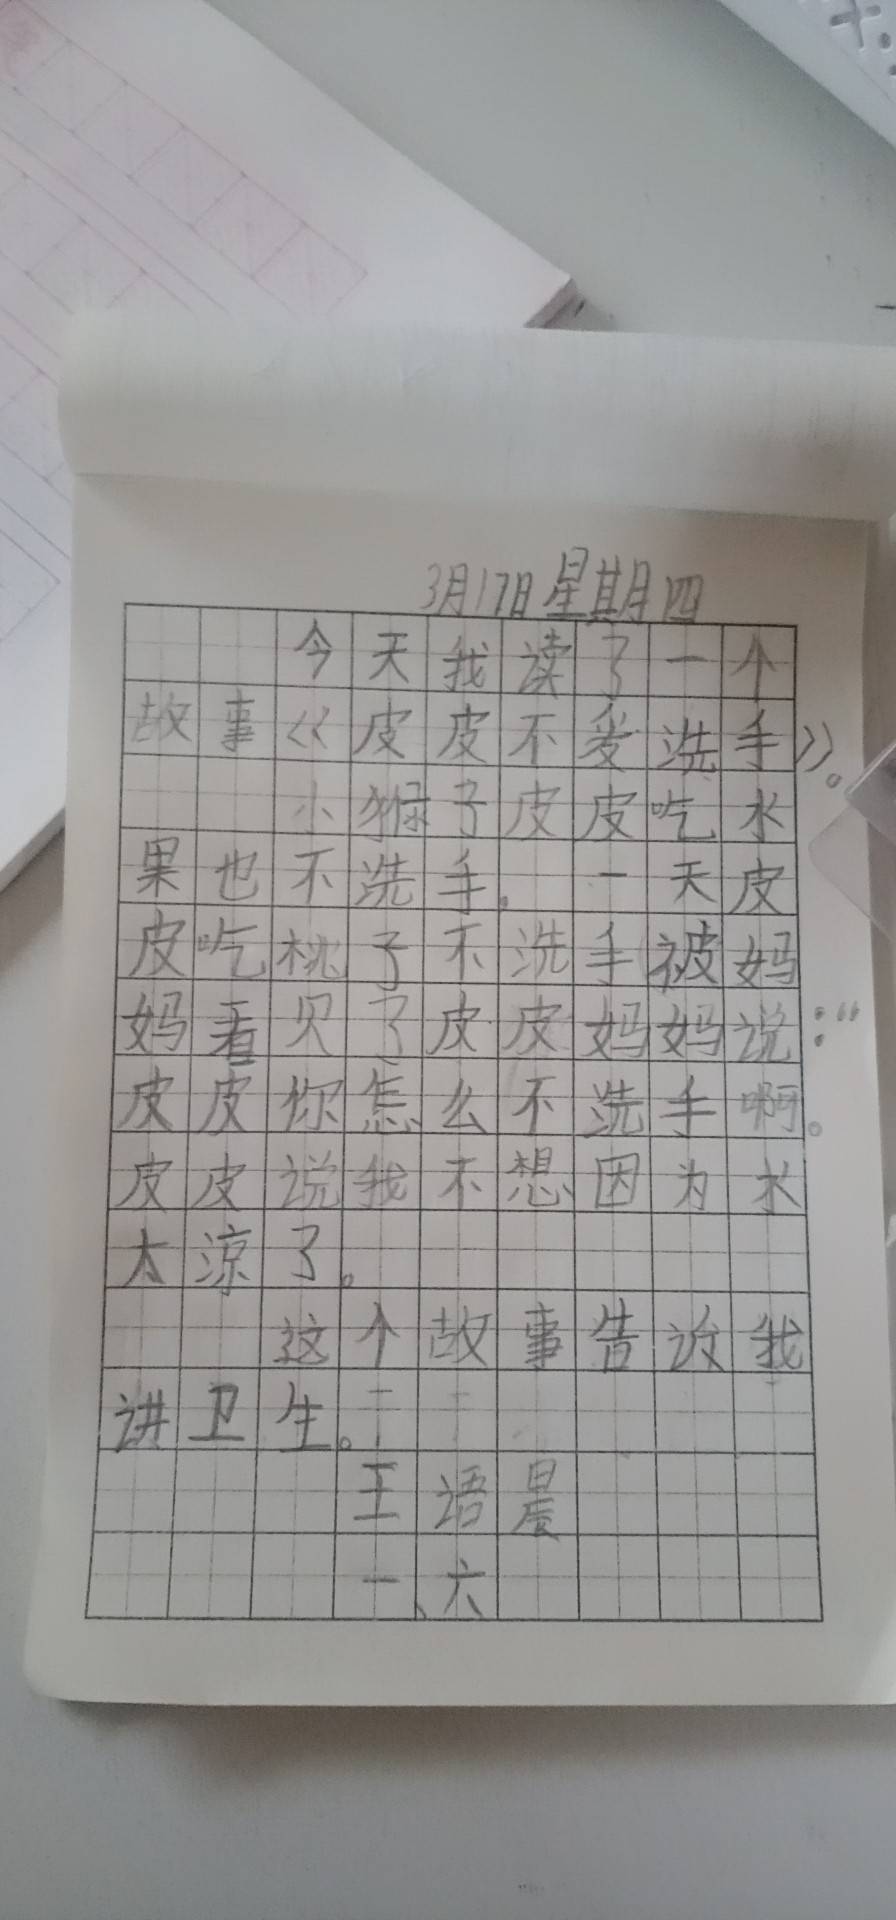 3月17日星期四
今天我读了一个
故事《皮皮不爱洗手》。
小猴子皮皮吃水
果也不洗手。一天皮
皮吃桃子不洗手被妈
妈看见了皮皮妈妈说：“
皮皮你怎么不洗手啊。
皮皮说我不想因为水
太凉了。
这个故事告诉我
讲卫生。
王语晨
一、六